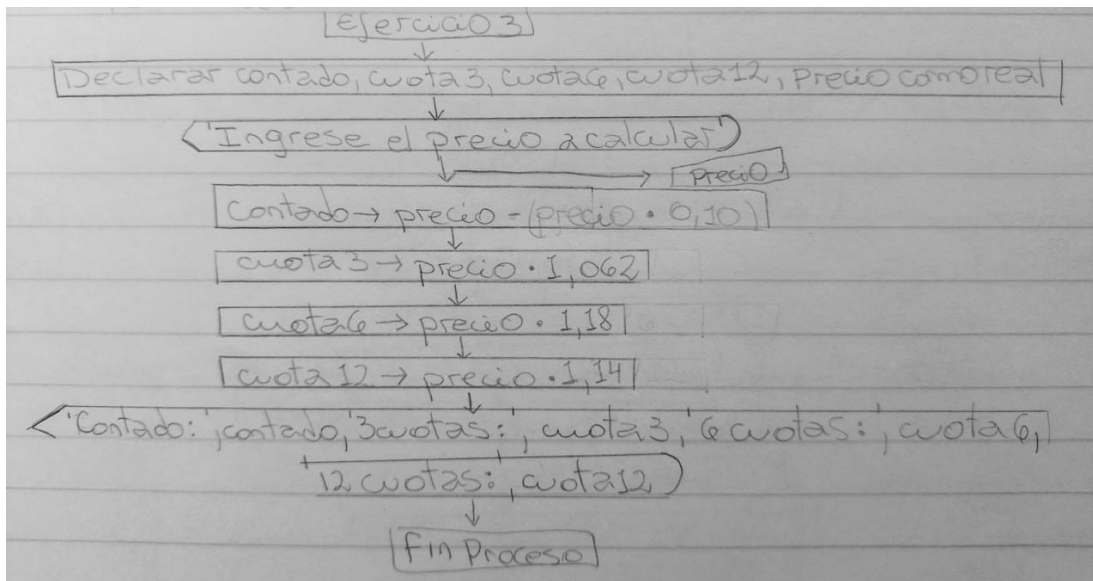 Ejercicio 3
Declarar contado, cuota3, cuota6, cuota12, precio como real
'Ingrese el precio a calcular'
precio
Contado → precio - (precio • 0,10)
cuota3 → precio • 1,062
cuota6 → precio • 1,18
cuota12 → precio • 1,14
'Contado:', contado, '3cuotas:', cuota3, '6 cuotas:', cuota6,
'12 cuotas:', cuota12
Fin Proceso